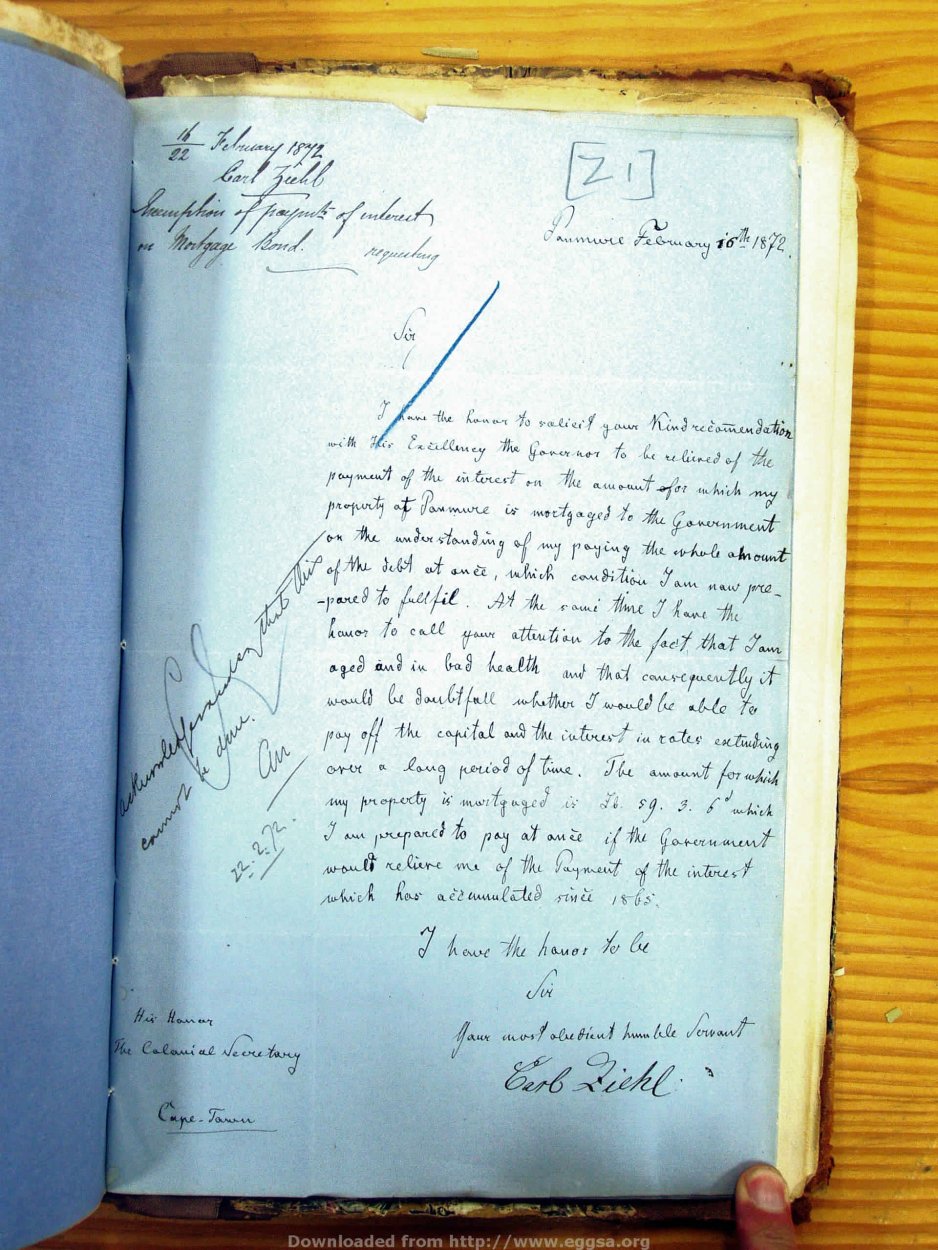 16/22 February 1872
Carl Ziehl
Exemption of paymts of interest
on Mortgage Bond. requesting
[21]
Panmure February 16th 1872.
Sir
I have the honor to solicit your Kind recomendation
with His Excellency the Governor to be relieved of the
payment of the interest on the amount for which my
property at Panmure is mortgaged to the Government
on the understanding of my paying the whole amount
of the debt at once, which condition I am now pre-
-pared to fullfil. At the same time I have the
honor to call your attention to the fact that I am
aged and in bad health and that consequently it
would be doubtfull whether I would be able to
pay off the capital and the interest in rates extending
over a long period of time. The amount for which
my property is mortgaged is 59. 3. 6d which
I am prepared to pay at once if the Government
would relieve me of the Payment of the interest
which has accumulated since 1865.
I have the honor to be
Sir
Your most obedient humble Servant
Carl Ziehl.
His Honor
The Colonial Secretary
Cape-Town
acknowledge that this
cannot be done.
22.2.72.
Downloaded from http://www.eggsa.org